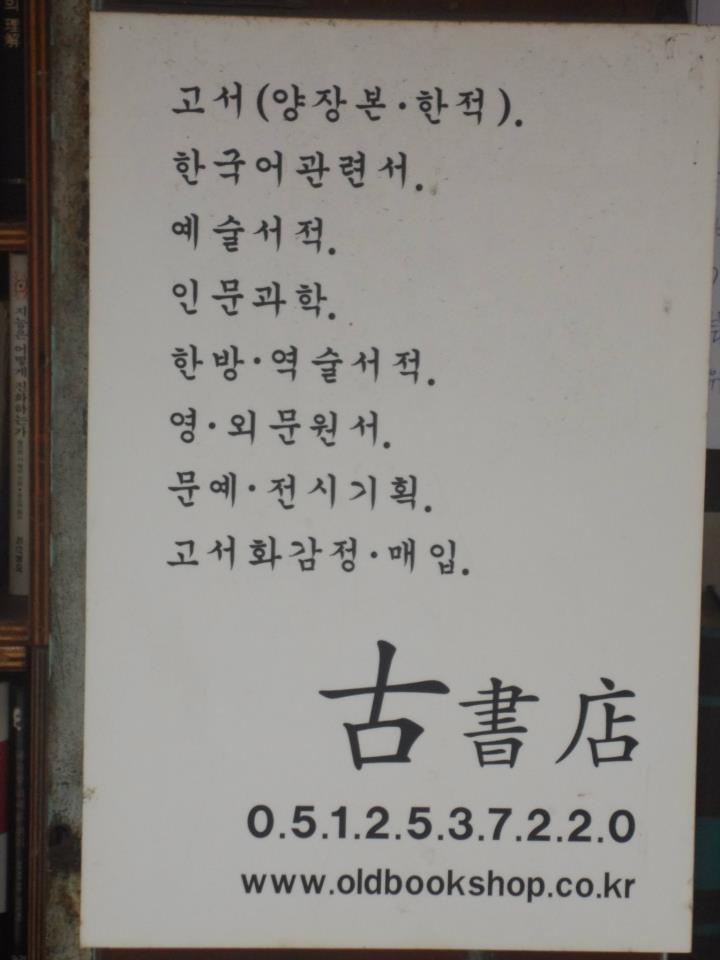 고서(양장본·한적).
한국어관련서.
예술서적.
인문과학.
한방·역술서적.
영·외문원서.
문예·전시기획.
고서화감정·매입.
古書店
0.5.1.2.5.3.7.2.2.0
www.oldbookshop.co.kr
理解
지능은 어떻게 진화하는가